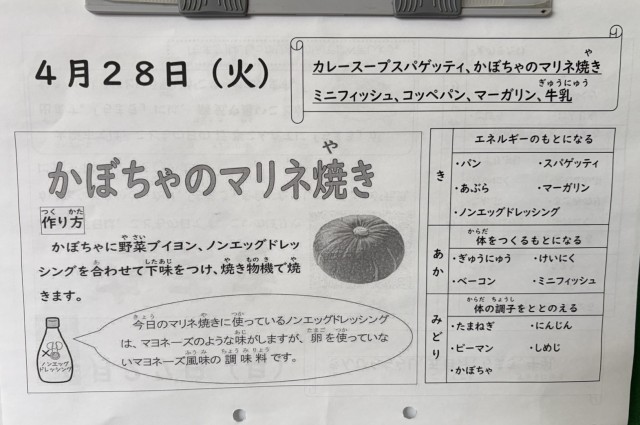 4月28日（火）
カレースープスパゲッティ、かぼちゃのマリネ焼き
や
ミニフィッシュ、コッペパン、マーガリン、牛乳
ぎゅうにゅう
かぼちゃのマリネ焼き
や
作り方
つく かた
かぼちゃに野菜ブイヨン、ノンエッグドレッ
やさい
シングを合わせて下味をつけ、焼き物機で焼
あ したあじ や ものき や
きます。
今日のマリネ焼きに使っているノンエッグドレッシング
きょう や つか
は、マヨネーズのような味がしますが、卵を使っていな
あじ たまご つか
いマヨネーズ風味の調味料です。
ふうみ ちょうみりょう
ノンエッグ
ドレッシング
き
エネルギーのもとになる
・パン ・スパゲッティ
・あぶら ・マーガリン
・ノンエッグドレッシング
あか
体をつくるもとになる
からだ
・ぎゅうにゅう ・けいにく
・ベーコン ・ミニフィッシュ
みどり
体の調子をととのえる
からだ ちょうし
・たまねぎ ・にんじん
・ピーマン ・しめじ
・かぼちゃ